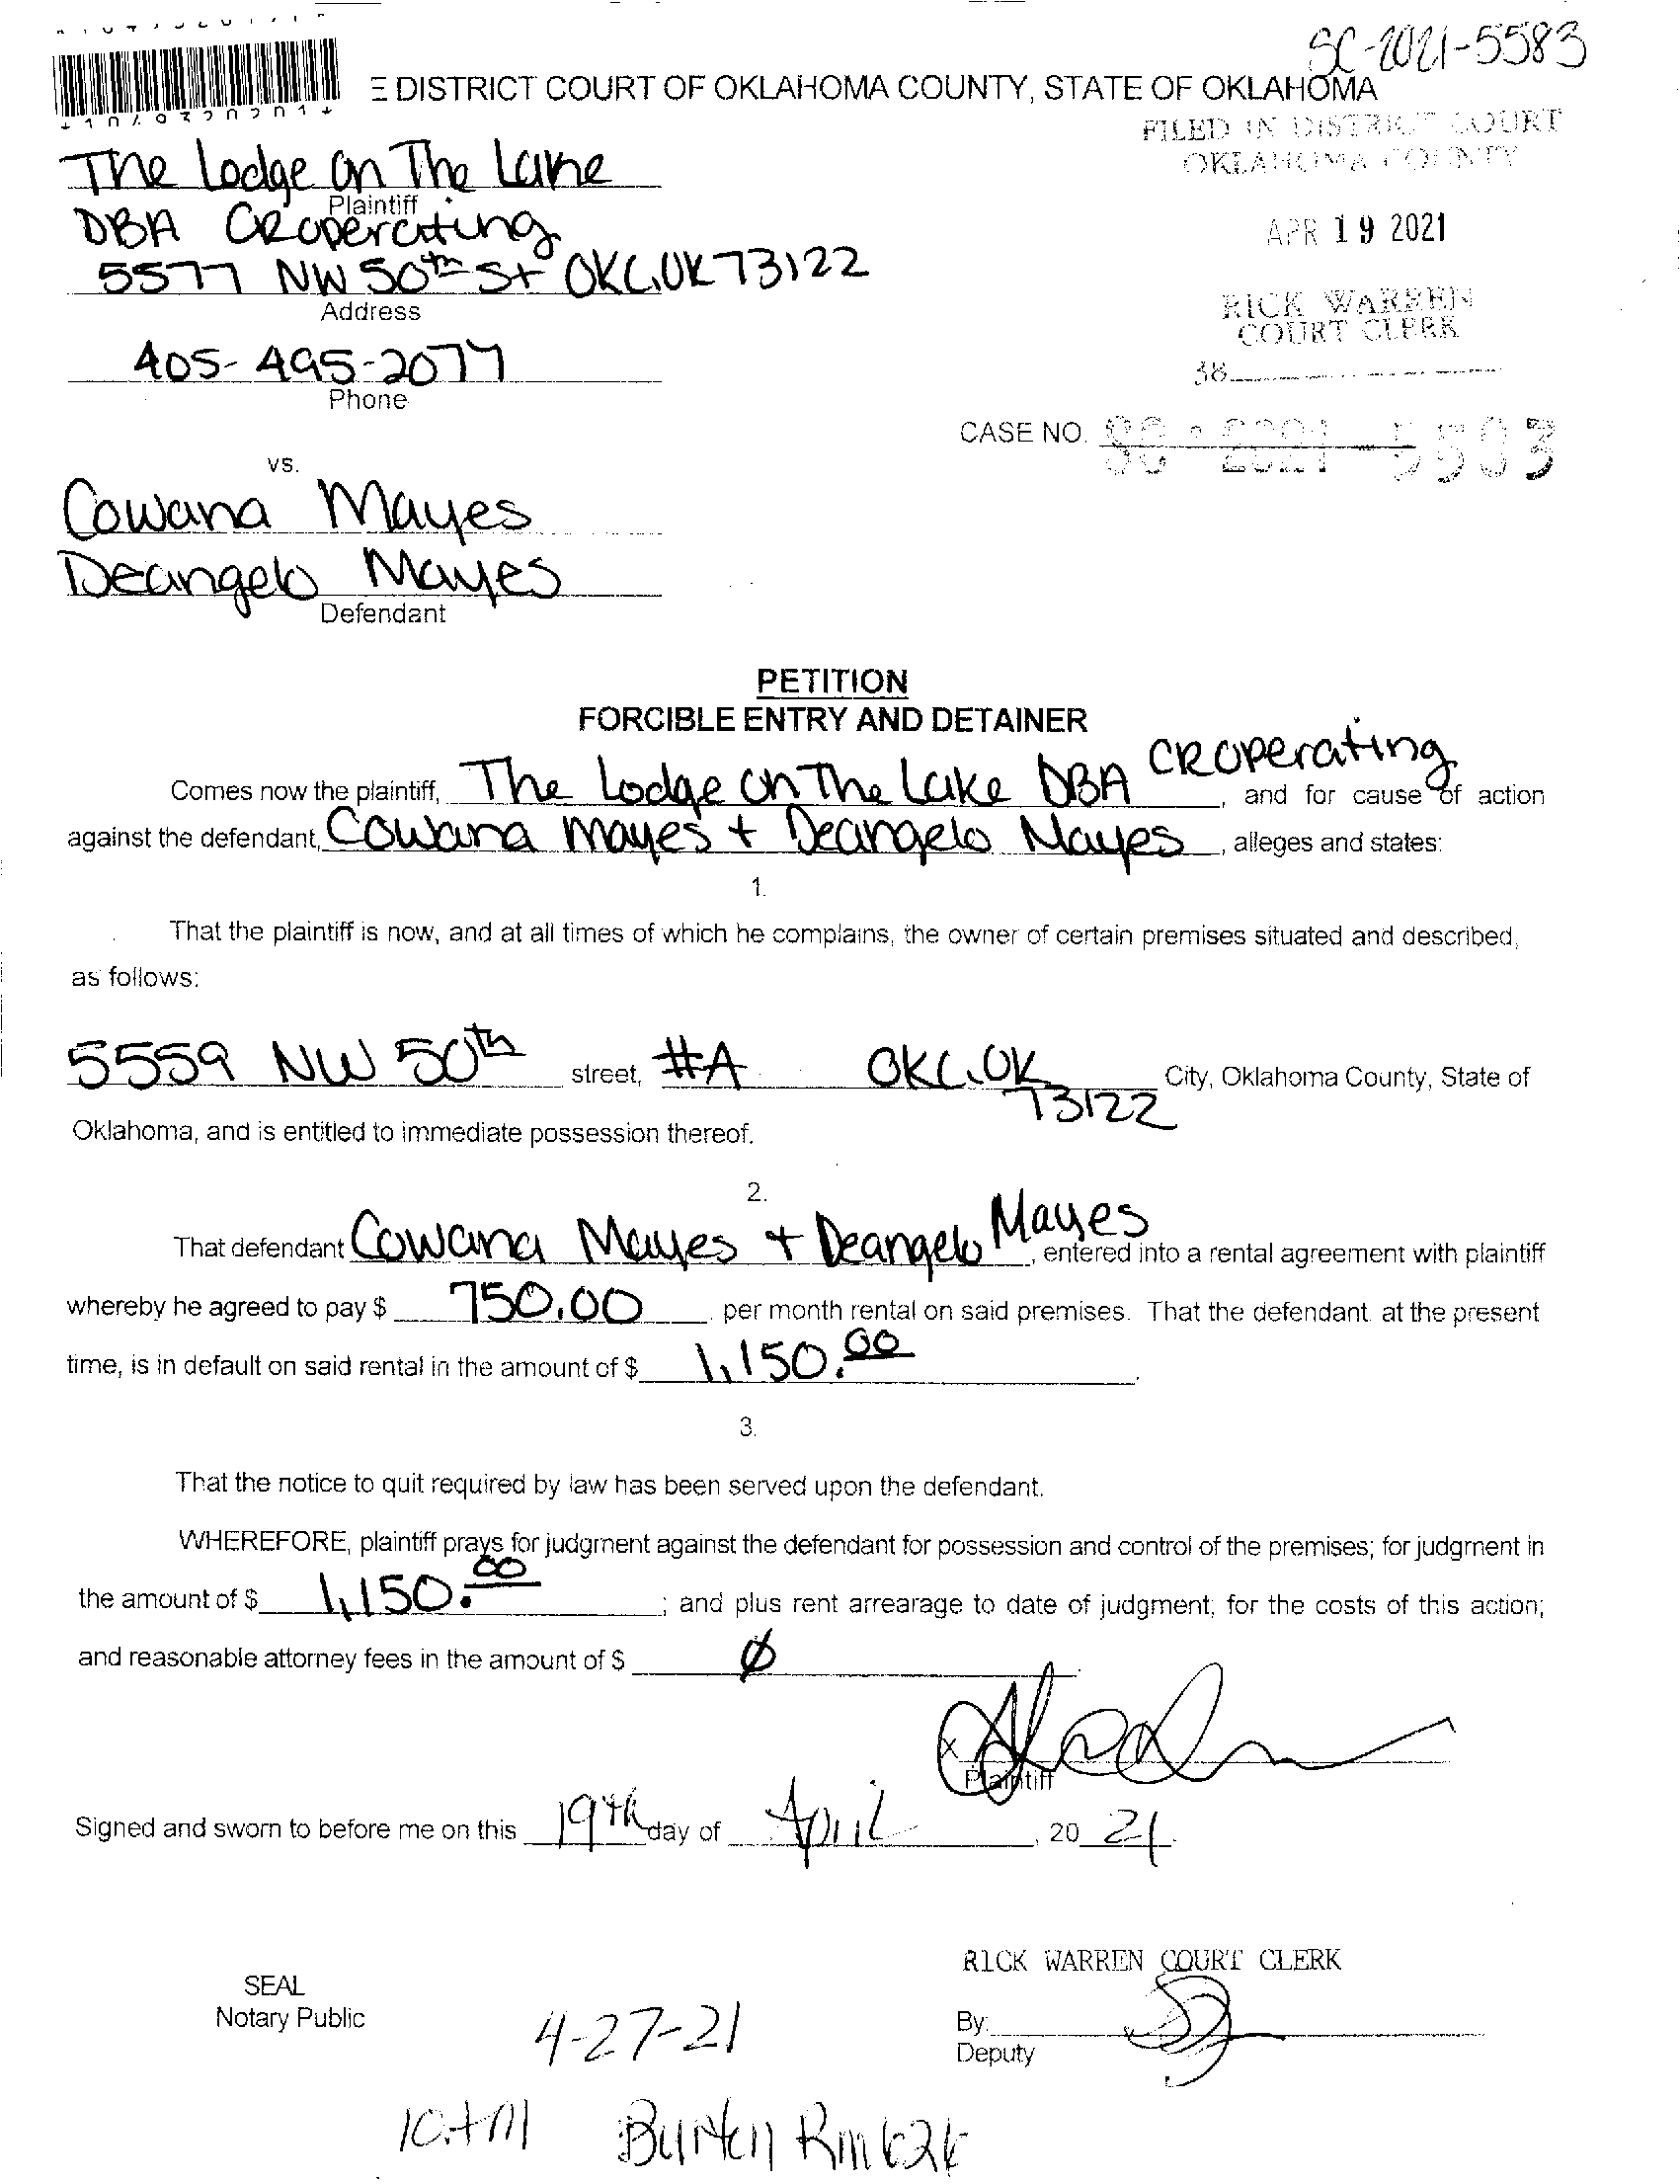 SC-2021-5583
E DISTRICT COURT OF OKLAHOMA COUNTY, STATE OF OKLAHOMA
FILED IN DISTRICT COURT
OKLAHOMA COUNTY
The Lodge on The Lake
Plaintiff
DBA CROperating
5577 NW 50th St OKC, OK 73122
Address
APR 19 2021
RICK WARREN
COURT CLERK
38
405-495-2077
Phone
CASE NO. SC - 2021 - 5583
vs.
Cowana Mayes
Deangelo Mayes
Defendant
PETITION
FORCIBLE ENTRY AND DETAINER
Comes now the plaintiff, The Lodge on The Lake DBA CROperating, and for cause of action
against the defendant, Cowana Mayes + Deangelo Mayes, alleges and states:
1.
That the plaintiff is now, and at all times of which he complains, the owner of certain premises situated and described,
as follows:
5559 NW 50th street, #A OKC, OK 73122 City, Oklahoma County, State of
Oklahoma, and is entitled to immediate possession thereof.
2.
That defendant Cowana Mayes + Deangelo Mayes, entered into a rental agreement with plaintiff
whereby he agreed to pay $ 750.00 per month rental on said premises. That the defendant at the present
time, is in default on said rental in the amount of $ 1,150.00.
3.
That the notice to quit required by law has been served upon the defendant.
WHEREFORE, plaintiff prays for judgment against the defendant for possession and control of the premises; for judgment in
the amount of $ 1,150.00; and plus rent arrearage to date of judgment; for the costs of this action;
and reasonable attorney fees in the amount of $ Ø
x
Plaintiff
Signed and sworn to before me on this 19th day of April, 20 21.
RICK WARREN COURT CLERK
SEAL
Notary Public
4-27-21
By:
Deputy